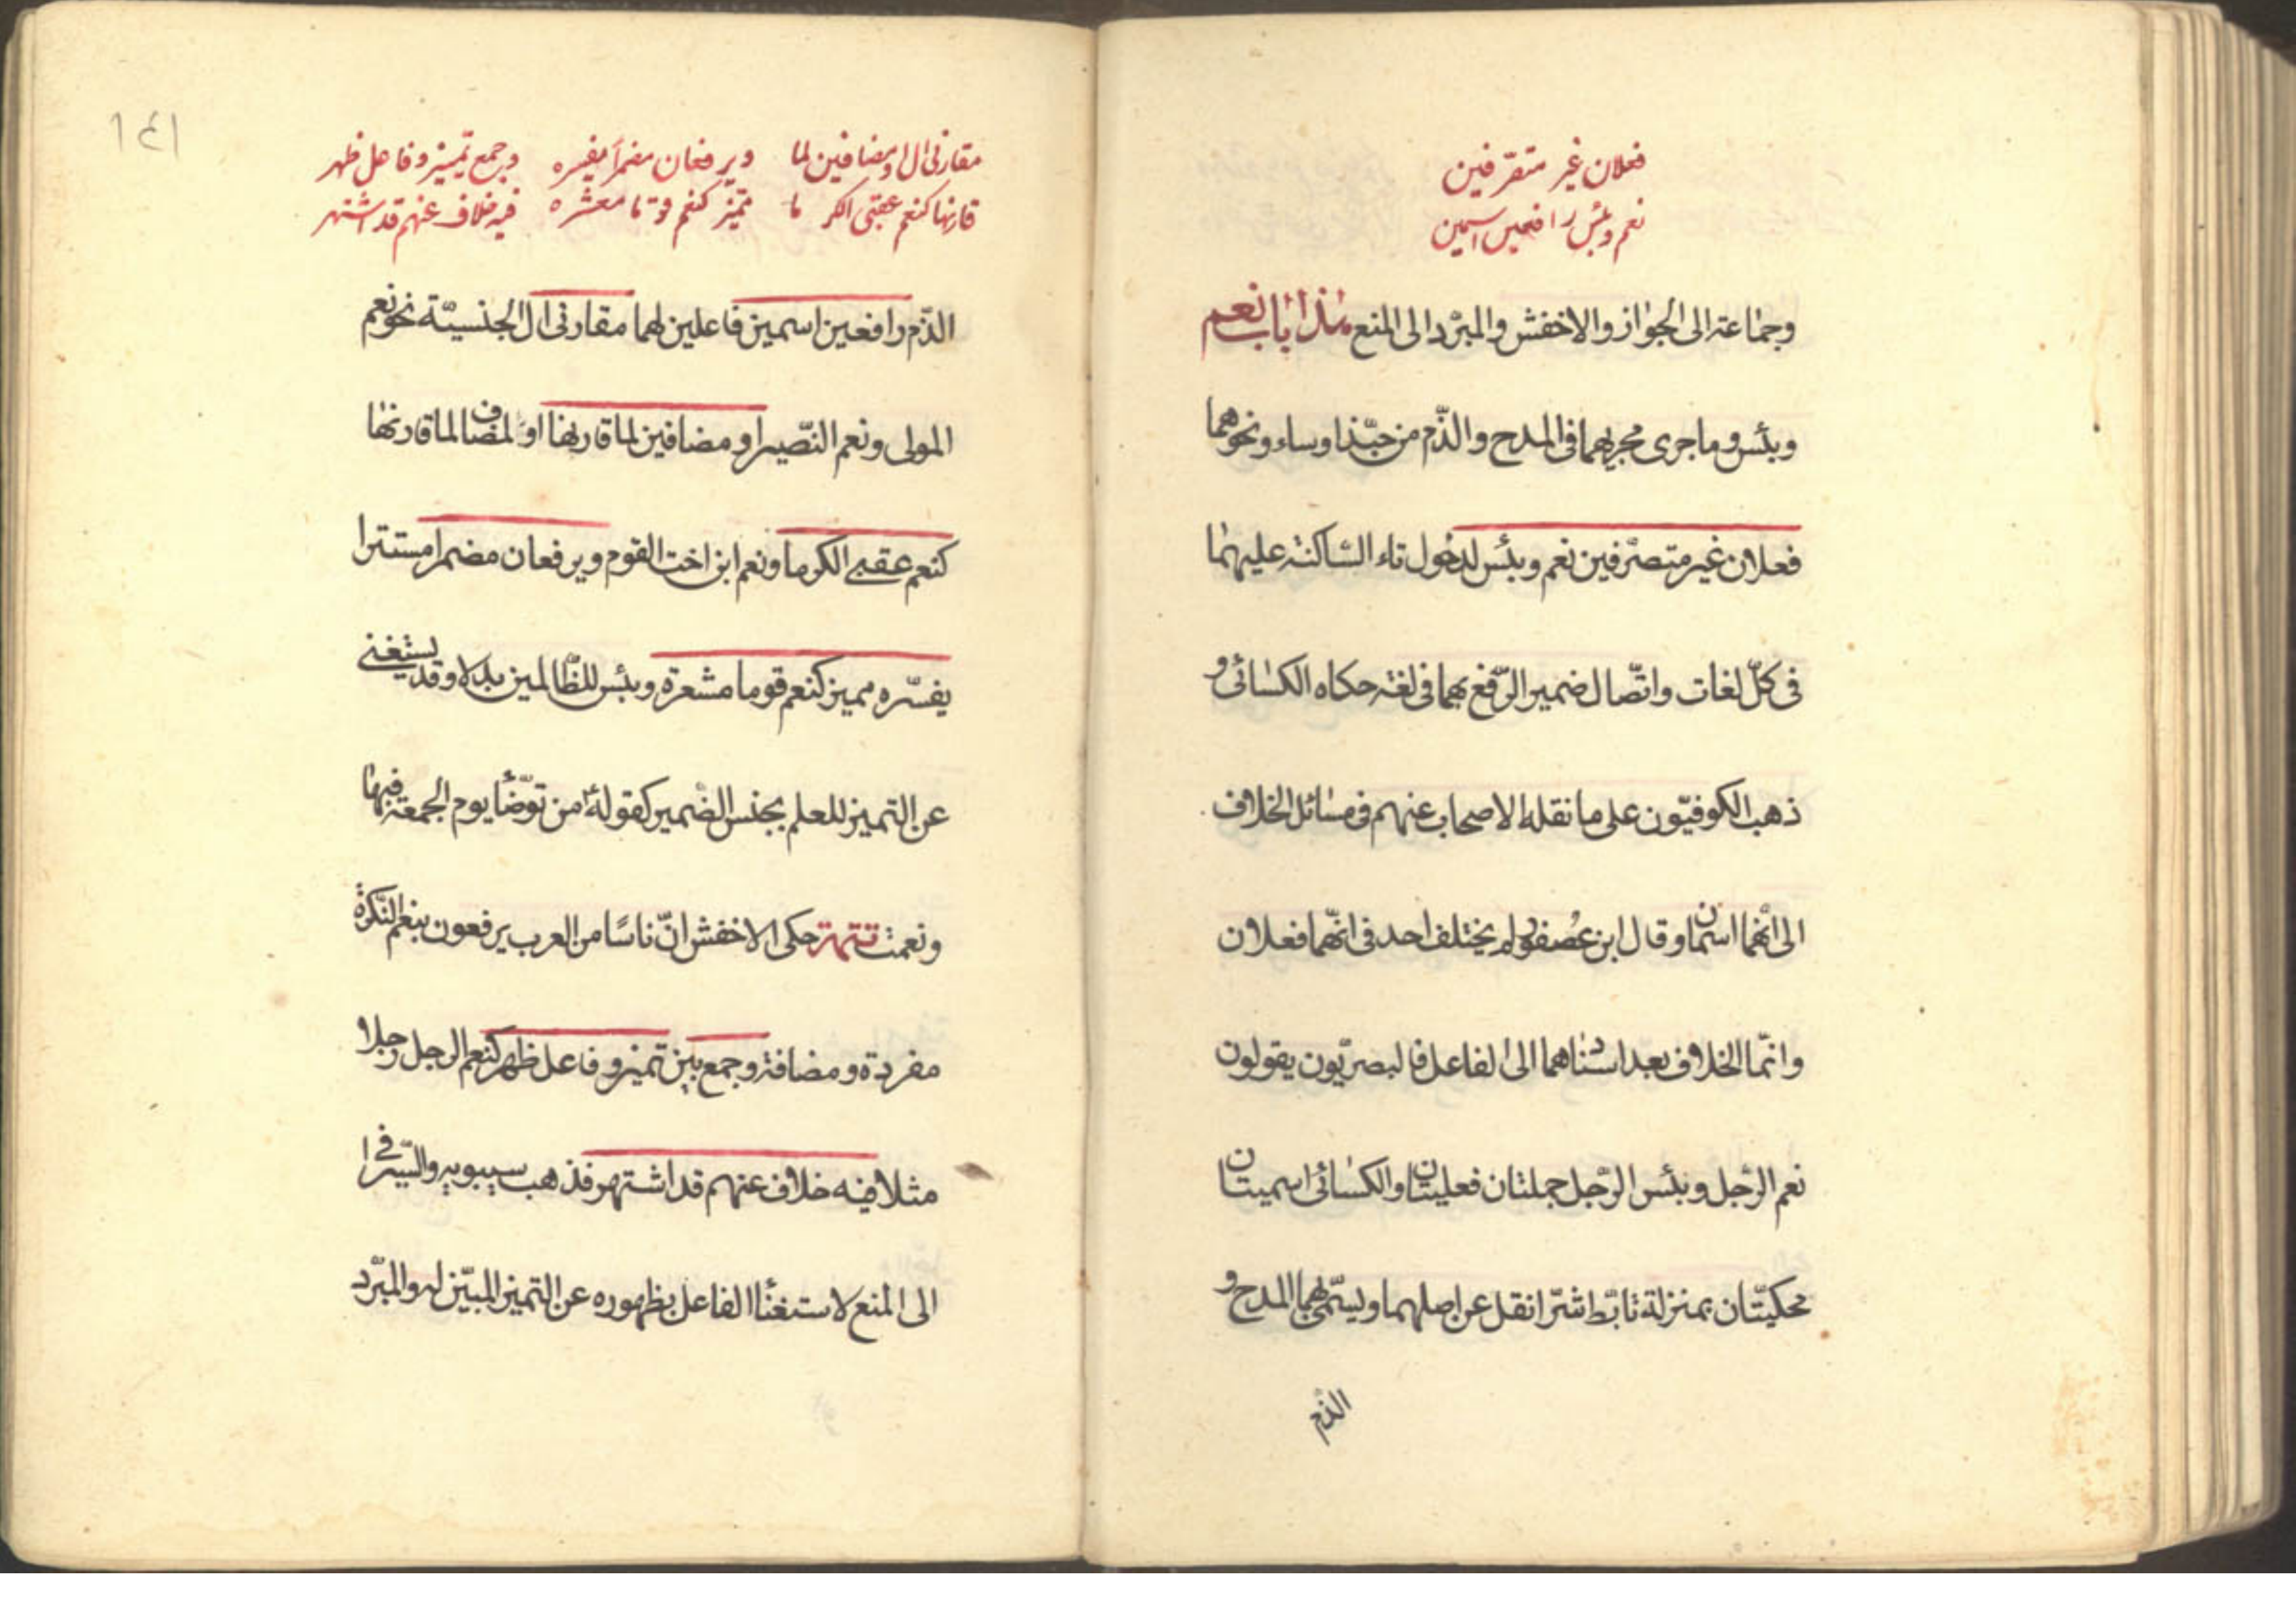 فعلان غير متصرّفين
نعم وبئس رافعين اسمين
وجماعة الى الجواز والاخفش والمبرّد الى المنع هذا باب نعم
وبئس وما جرى مجريهما فى المدح والذّم من حبّذا وساء ونحوهما
فعلان غير متصرّفين نعم وبئس لدخول تاء السّاكنة عليهما
فى كلّ لغات واتّصال ضمير الرّفع بهما فى لغة حكاه الكسائى و
ذهب الكوفيّون على ما نقله الاصحاب عنهم فى مسائل الخلاف
الى انّهما اسمان وقال ابن عصفور لم يختلف احد فى انّهما فعلان
وانّما الخلاف بعد اسنادهما الى الفاعل فالبصريّون يقولون
نعم الرّجل وبئس الرّجل جملتان فعليتان والكسائى اسميتان
محكيّتان بمنزلة تابّط شرّا نقل عن اصلهما ويسمّى بهما المدح و
الذم
١٤١
مقارنى ال او مضافين لما ويرفعان مضمراً يفسره وجمع تمييز وفاعل ظهر
قارنها كنعم عقبى الكرما مميّز كنعم قوما معشره فيه خلاف عنهم قد اشتهر
الذّم رافعين اسمين فاعلين لهما مقارنى ال الجنسيّة نحو نعم
المولى ونعم النّصير او مضافين لما قارنها او لمضاف لما قارنها
كنعم عقبى الكرما ونعم ابن اخت القوم ويرفعان مضمرا مستترا
يفسّره مميز كنعم قوما معشرة وبئس للظّالمين بدلا وقد يستغنى
عن التميز للعلم بجنس الضمير كقوله من توضّأ يوم الجمعة فبها
ونعمت تتمة حكى الاخفش انّ ناسًا من العرب يرفعون بنعم النّكرة
مفردة ومضافة وجمع بين تميز وفاعل ظهر كنعم الرجل رجلا
مثلا فيه خلاف عنهم قد اشتهر فذهب سيبويه والسّيرافى
الى المنع لاستغنأ الفاعل بظهوره عن التميز المبيّن له والمبرّد